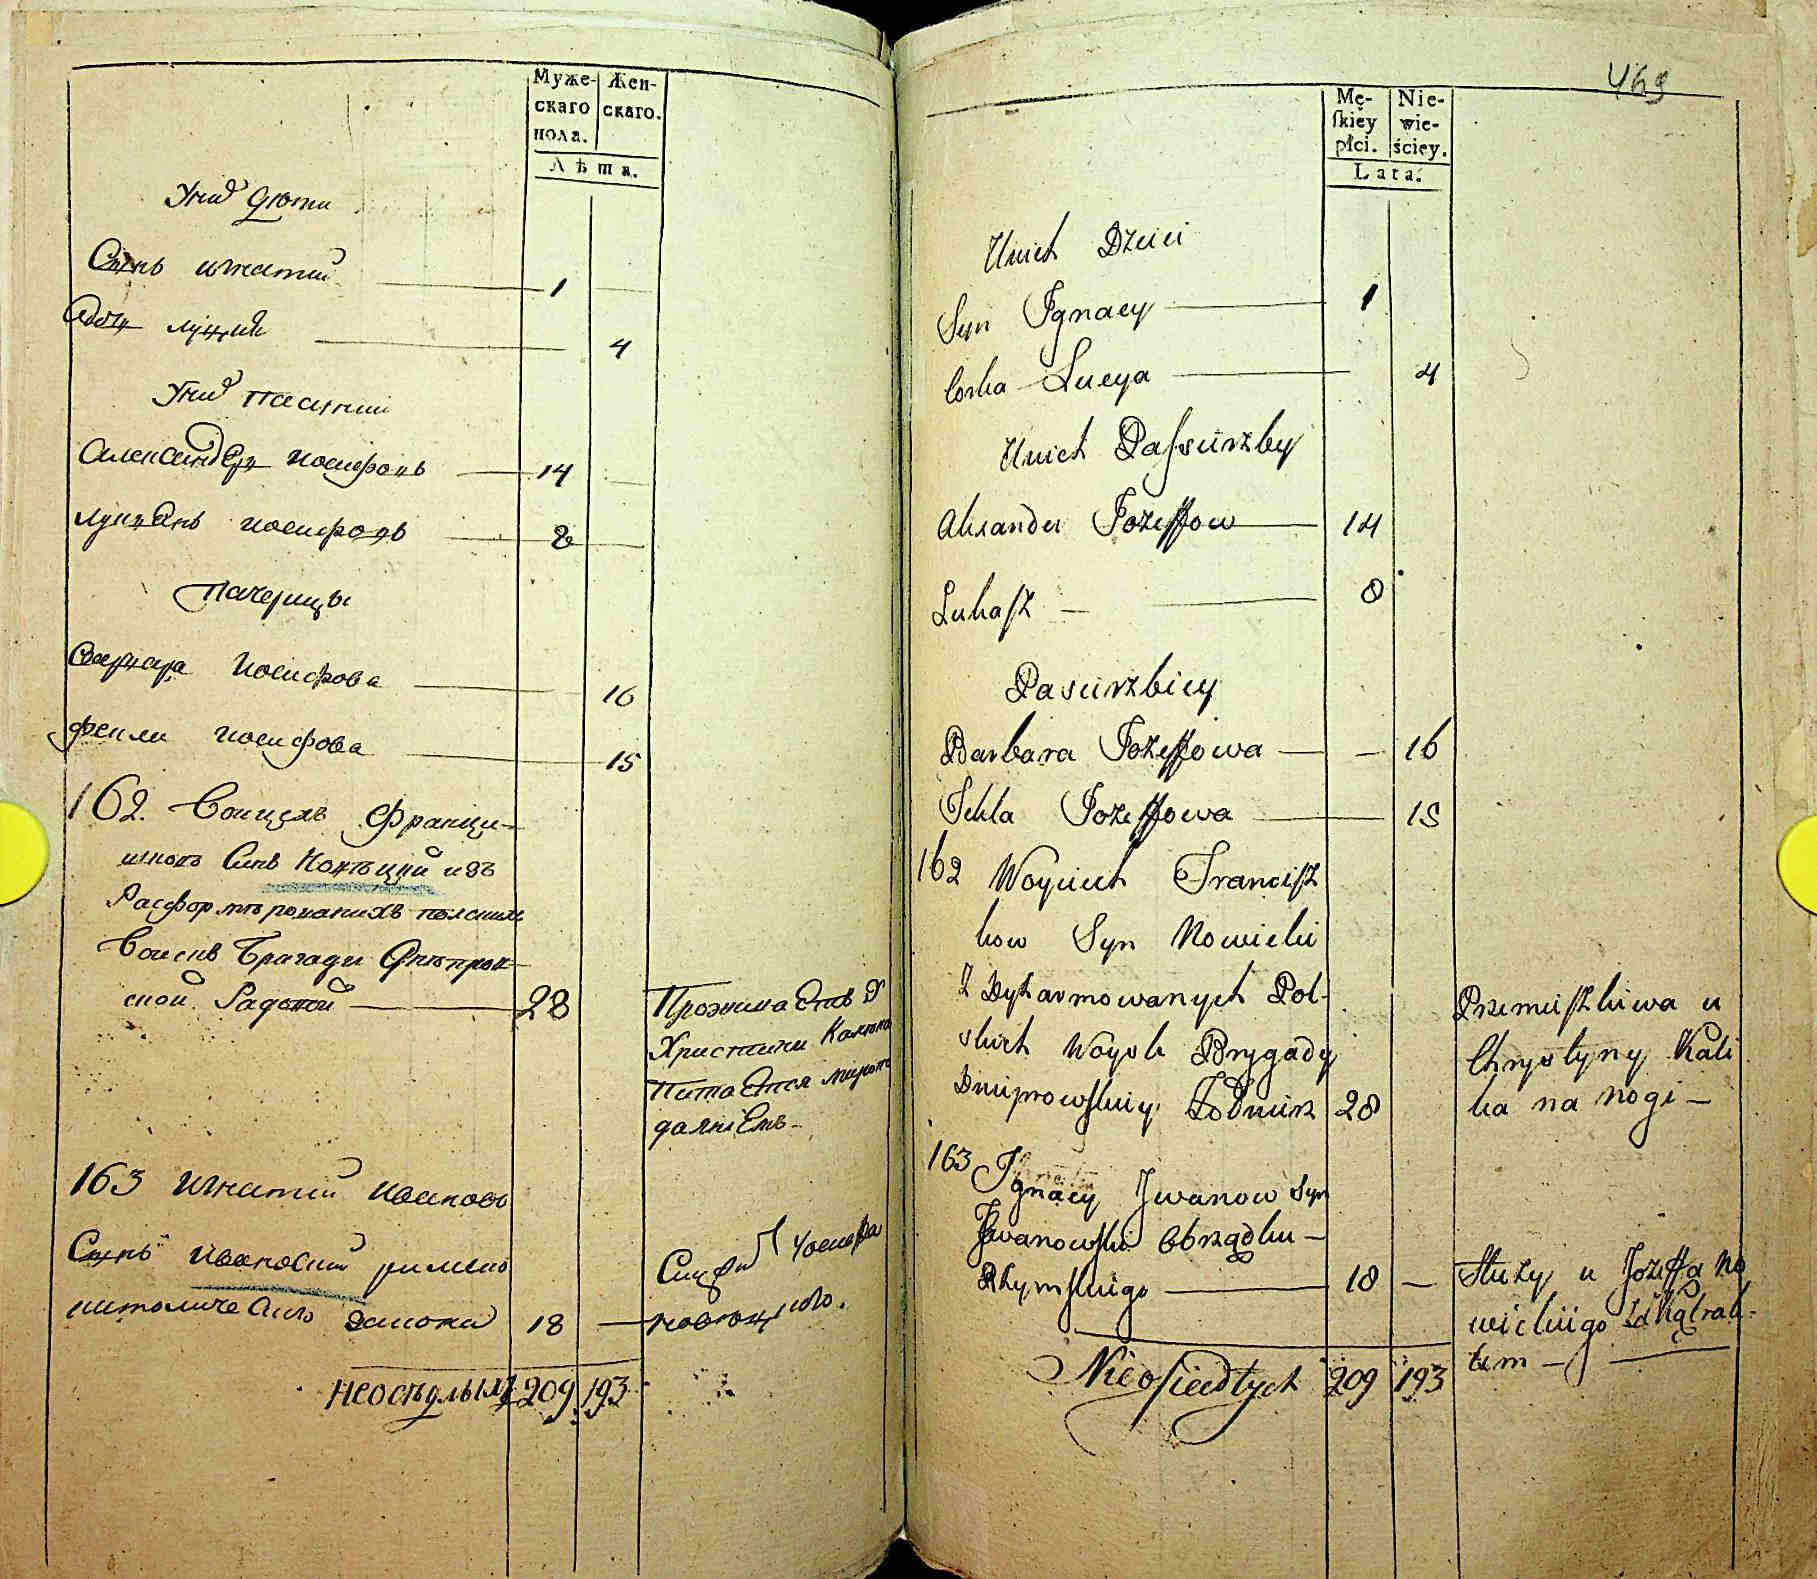 Муже-
скаго
пола.
Жен-
скаго.
Лѣта.
Унихъ дѣти
Сынъ игнатий 1
Дочь луция 4
Унихъ пасинки
Александеръ иосифовъ 14
иосифовъ 8
Пачерицы
Варвара Иосифова 16
фекли иосифова 15
162. Воицехъ Франци-
шковъ Синъ Новѣцкий изъ
Расформѣрованихъ полскихъ
Воискъ Брагади Днѣпров-
ской Радовой 28
Проживаетъ У
Христини
Питается милост
данiемъ
163 Игнатий Ивановъ
Сынъ Ивановский римско
католическаго закона 18
Служитъ У Иосифа
новѣцкого.
Неосѣдлыхъ 209 193
469
Mę-
skiey
płci.
Nie-
wie-
ściey.
Lata.
Unich Dzieci
Syn Ignacy 1
Corka Lucya 4
Unich Passierzby
Alexander Jozeffow 14
Lukasz 8
Pasierzbicy
Barbara Jozeffowa 16
Tekla Jozeffowa 15
162 Woyciech Francisz
kow Syn Nowicki
Z Dyharmowanych Pol-
skich Woysk Brygady
Dniprowskiey Żołnierz 28
Przemieszkiwa u
Chrystyny Kali
ka na nogi —
163 Ignacy Jwanow Syn
Jwanowski Obrządku —
Rhymskiego 18 —
Służy u Jozeffa No
wickiego
tem —
Nieosiedłych 209 193